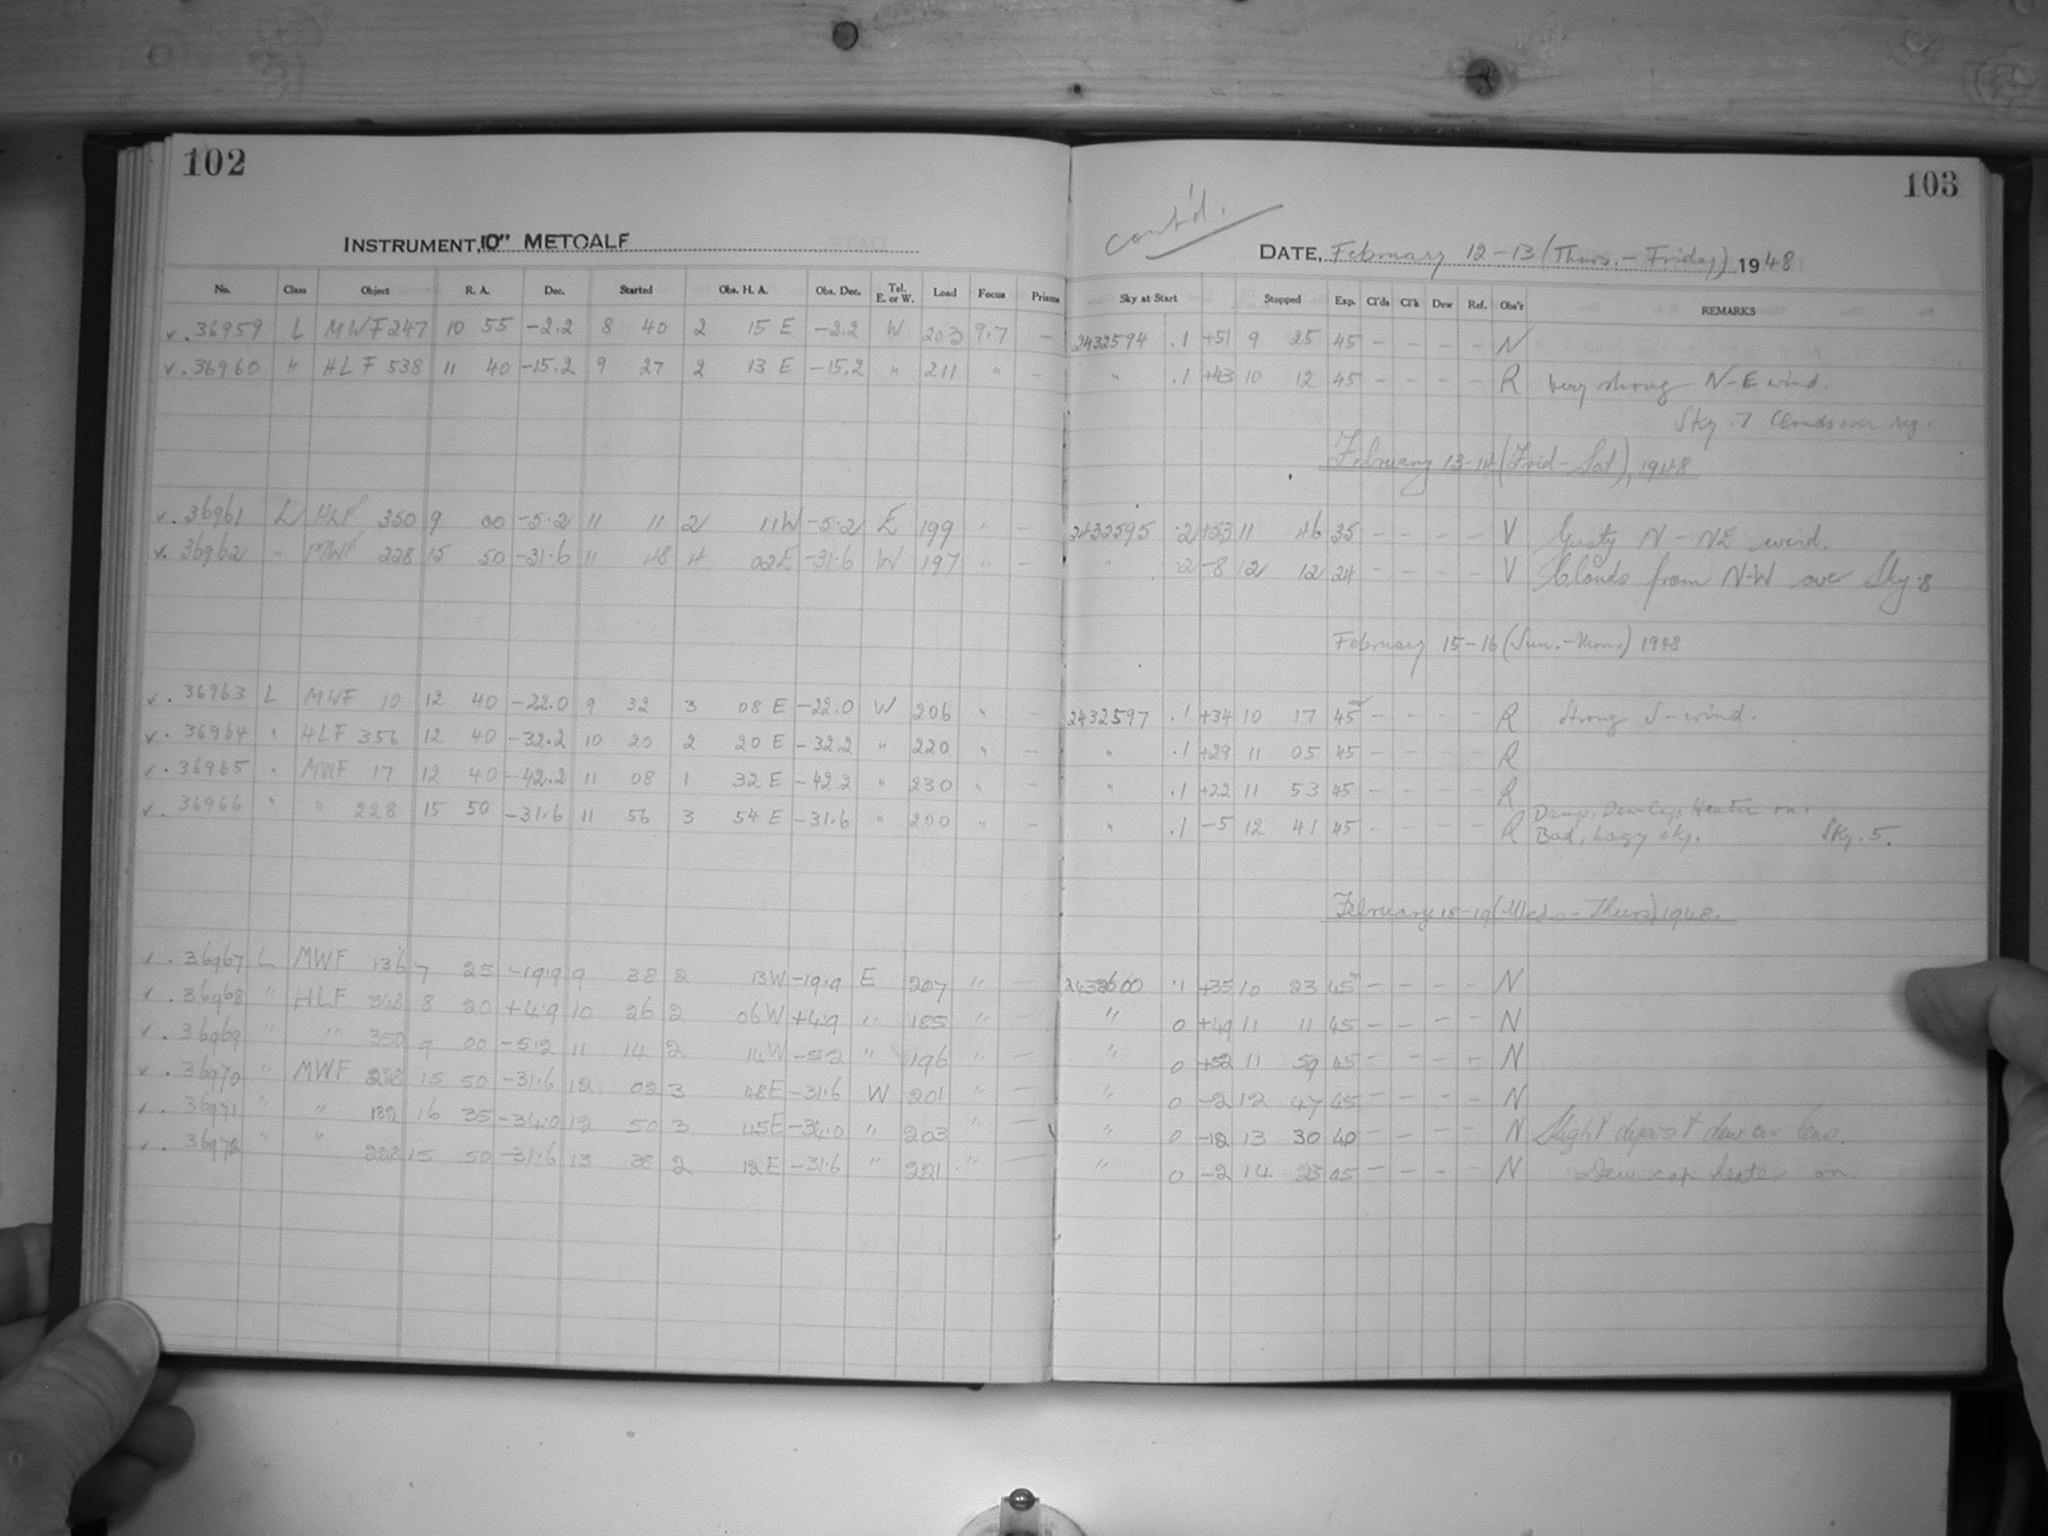 102
INSTRUMENT, 10" METCALF
No. Class Object R. A. Dec. Started Obs. H. A. Obs. Dec. Tel. E. or W. Load Focus Prisms
v. 36959 L MWF 247 10 55 -2.2 8 40 2 15 E -2.2 W 203 9.7 —
v. 36960 " HLF 538 11 40 -15.2 9 27 2 13 E -15.2 " 211 " —
v. 36961 L HLF 350 9 00 -5.2 11 11 2 11 W -5.2 E 199 " —
v. 36962 " MWF 228 15 50 -31.6 11 48 4 02 E -31.6 W 197 " —
v. 36963 L MWF 10 12 40 -22.0 9 32 3 08 E -22.0 W 206 " —
v. 36964 " HLF 356 12 40 -32.2 10 20 2 20 E -32.2 " 220 " —
v. 36965 " MWF 17 12 40 -42.2 11 08 1 32 E -42.2 " 230 " —
v. 36966 " " 228 15 50 -31.6 11 56 3 54 E -31.6 " 200 " —
v. 36967 L MWF 136 7 25 -19.9 9 38 2 13 W -19.9 E 207 " —
v. 36968 " HLF 348 8 20 +4.9 10 26 2 06 W +4.9 " 185 " —
v. 36969 " " 350 9 00 -5.2 11 14 2 14 W -5.2 " 196 " —
v. 36970 " MWF 228 15 50 -31.6 12 02 3 48 E -31.6 W 201 " —
v. 36971 " " 182 16 35 -34.0 12 50 3 45 E -34.0 " 203 " —
v. 36972 " " 228 15 50 -31.6 13 38 2 12 E -31.6 " 221 " —
103
cont'd.
DATE, February 12-13 (Thurs.-Friday) 1948
Sky at Start Stopped Exp. Cl'ds Cl'k Dew Ref. Obs'r REMARKS
2432594 .1 +51 9 25 45 - - - - N
" .1 +43 10 12 45 - - - - R Very strong N-E wind.
Sky .7 Clouds over reg.
February 13-14 (Frid-Sat), 1948
2432595 .2 +53 11 46 35 - - - - V Gusty N-NE wind.
" .2 -8 12 12 24 - - - - V Clouds from N-W over Sky .8
February 15-16 (Sun.-Mon.) 1948
2432597 .1 +34 10 17 45 - - - - R Strong S-wind.
" .1 +29 11 05 45 - - - - R
" .1 +22 11 53 45 - - - - R
Damp, Dew Cap Heater on.
" .1 -5 12 41 45 - - - - R Bad, hazy sky. Sky .5.
February 18-19 (Weds-Thurs) 1948.
2432600 .1 +35 10 23 45 - - - - N
" 0 +49 11 11 45 - - - - N
" 0 +52 11 59 45 - - - - N
" 0 -2 12 47 45 - - - - N
" 0 -12 13 30 40 - - - - N Slight deposit dew on lens.
" 0 -2 14 23 45 - - - - N Dew cap heater on.